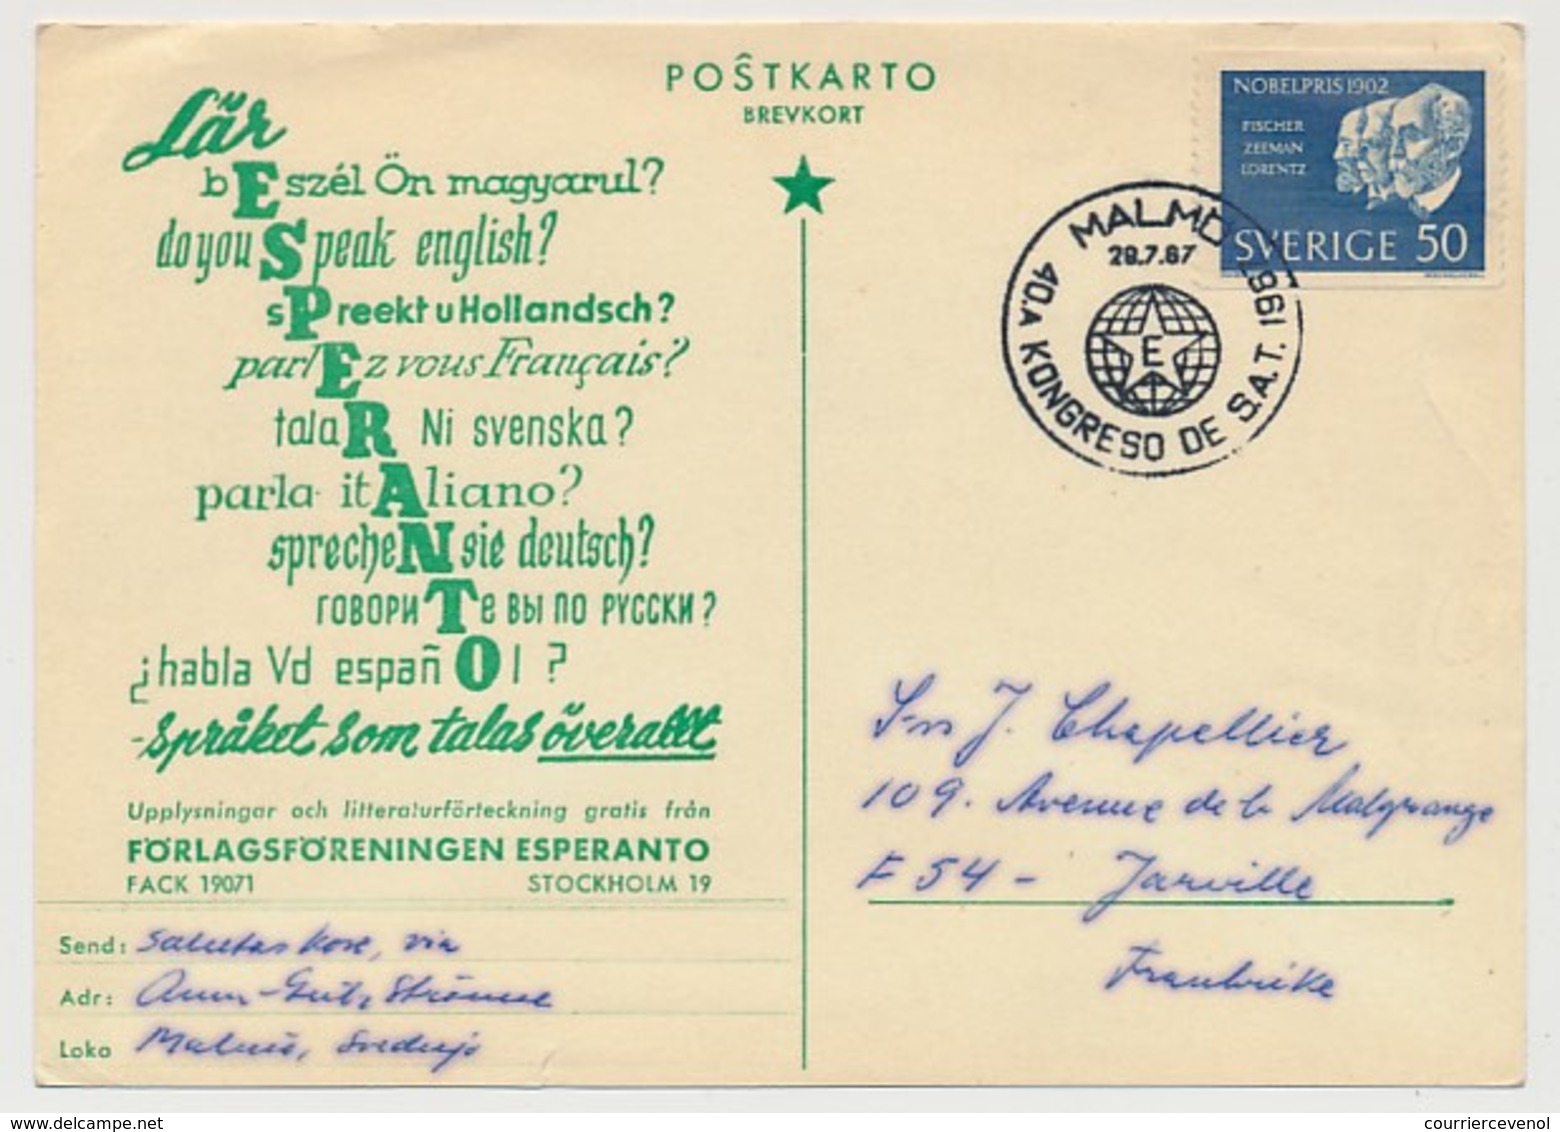 POŜTKARTO
BREVKORT
Lär
bEszél Ön magyarul?
do you Speak english?
sPreekt u Hollandsch?
parlEz vous Français?
talaR Ni svenska?
parla itAliano?
sprecheN sie deutsch?
говориTe вы по русски?
¿habla Vd españOl?
-språket som talas överallt
Upplysningar och litteraturförteckning gratis från
FÖRLAGSFÖRENINGEN ESPERANTO
FACK 19071 STOCKHOLM 19
Send: Salutas kore, via
Adr: Ann-Strömme
Loko Malmö, Svedujo
NOBELPRIS 1902
FISCHER
ZEEMAN
LORENTZ
SVERIGE 50
MALMÖ 1967
28.7.67
40.A KONGRESO DE S.A.T.
E
S-ro J. Chapellier
109. Avenue de la Malgrange
F 54 - Jarville
Frankrike
courriercevenol